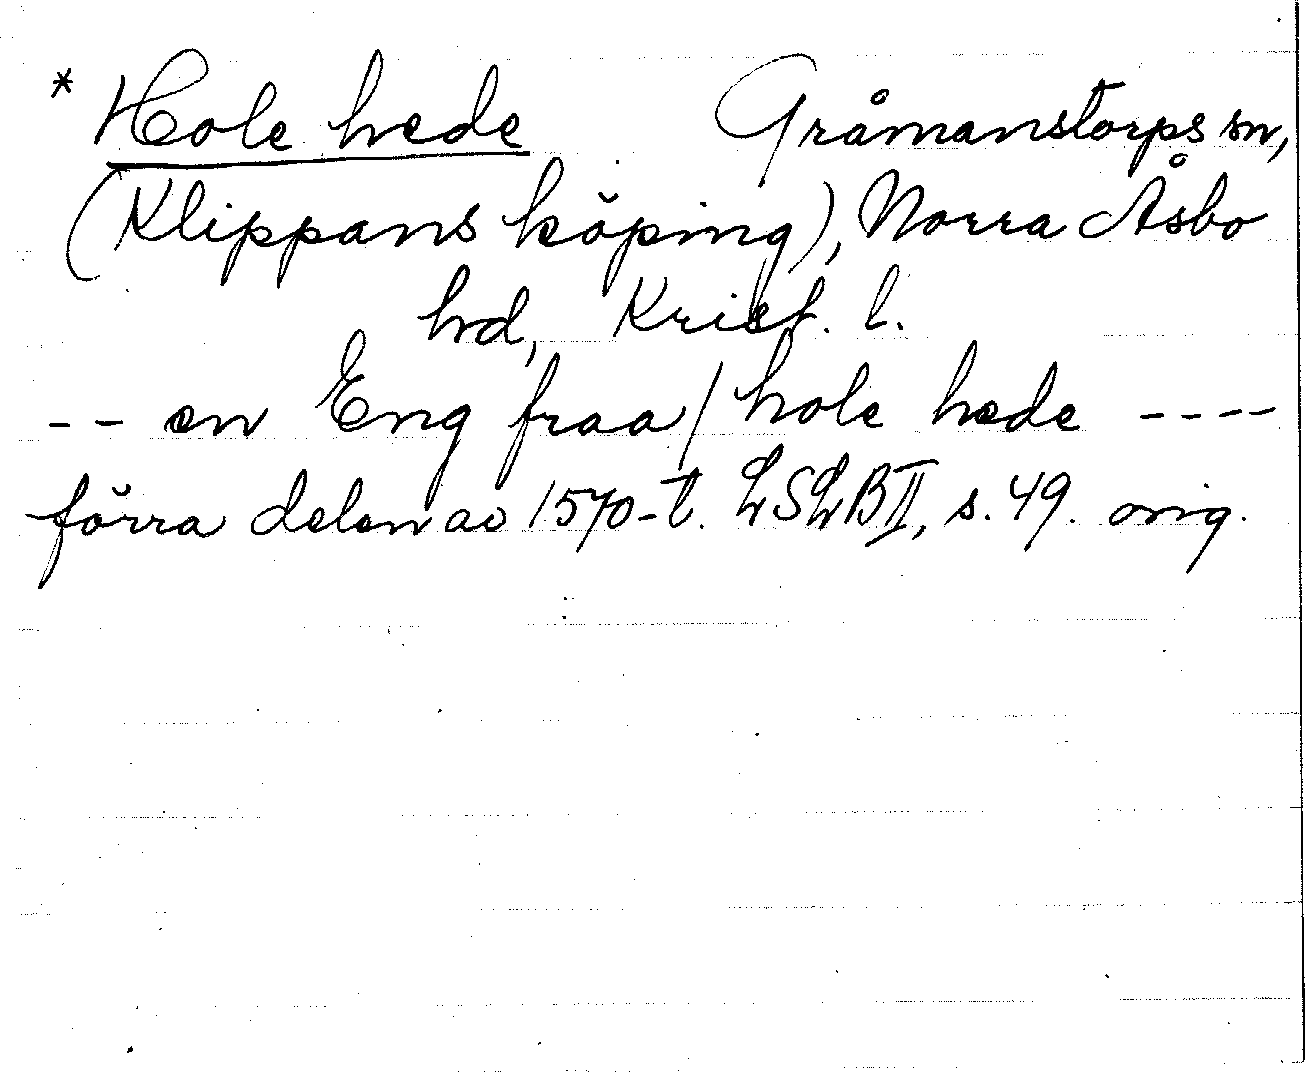 * Hole hede Gråmanstorps sn,
(Klippans köping), Norra Åsbo
hd, Krist. l.
-- en Eng fraa/hole hede ----
förra delen av 1570-t. LSLB II, s. 49. orig.